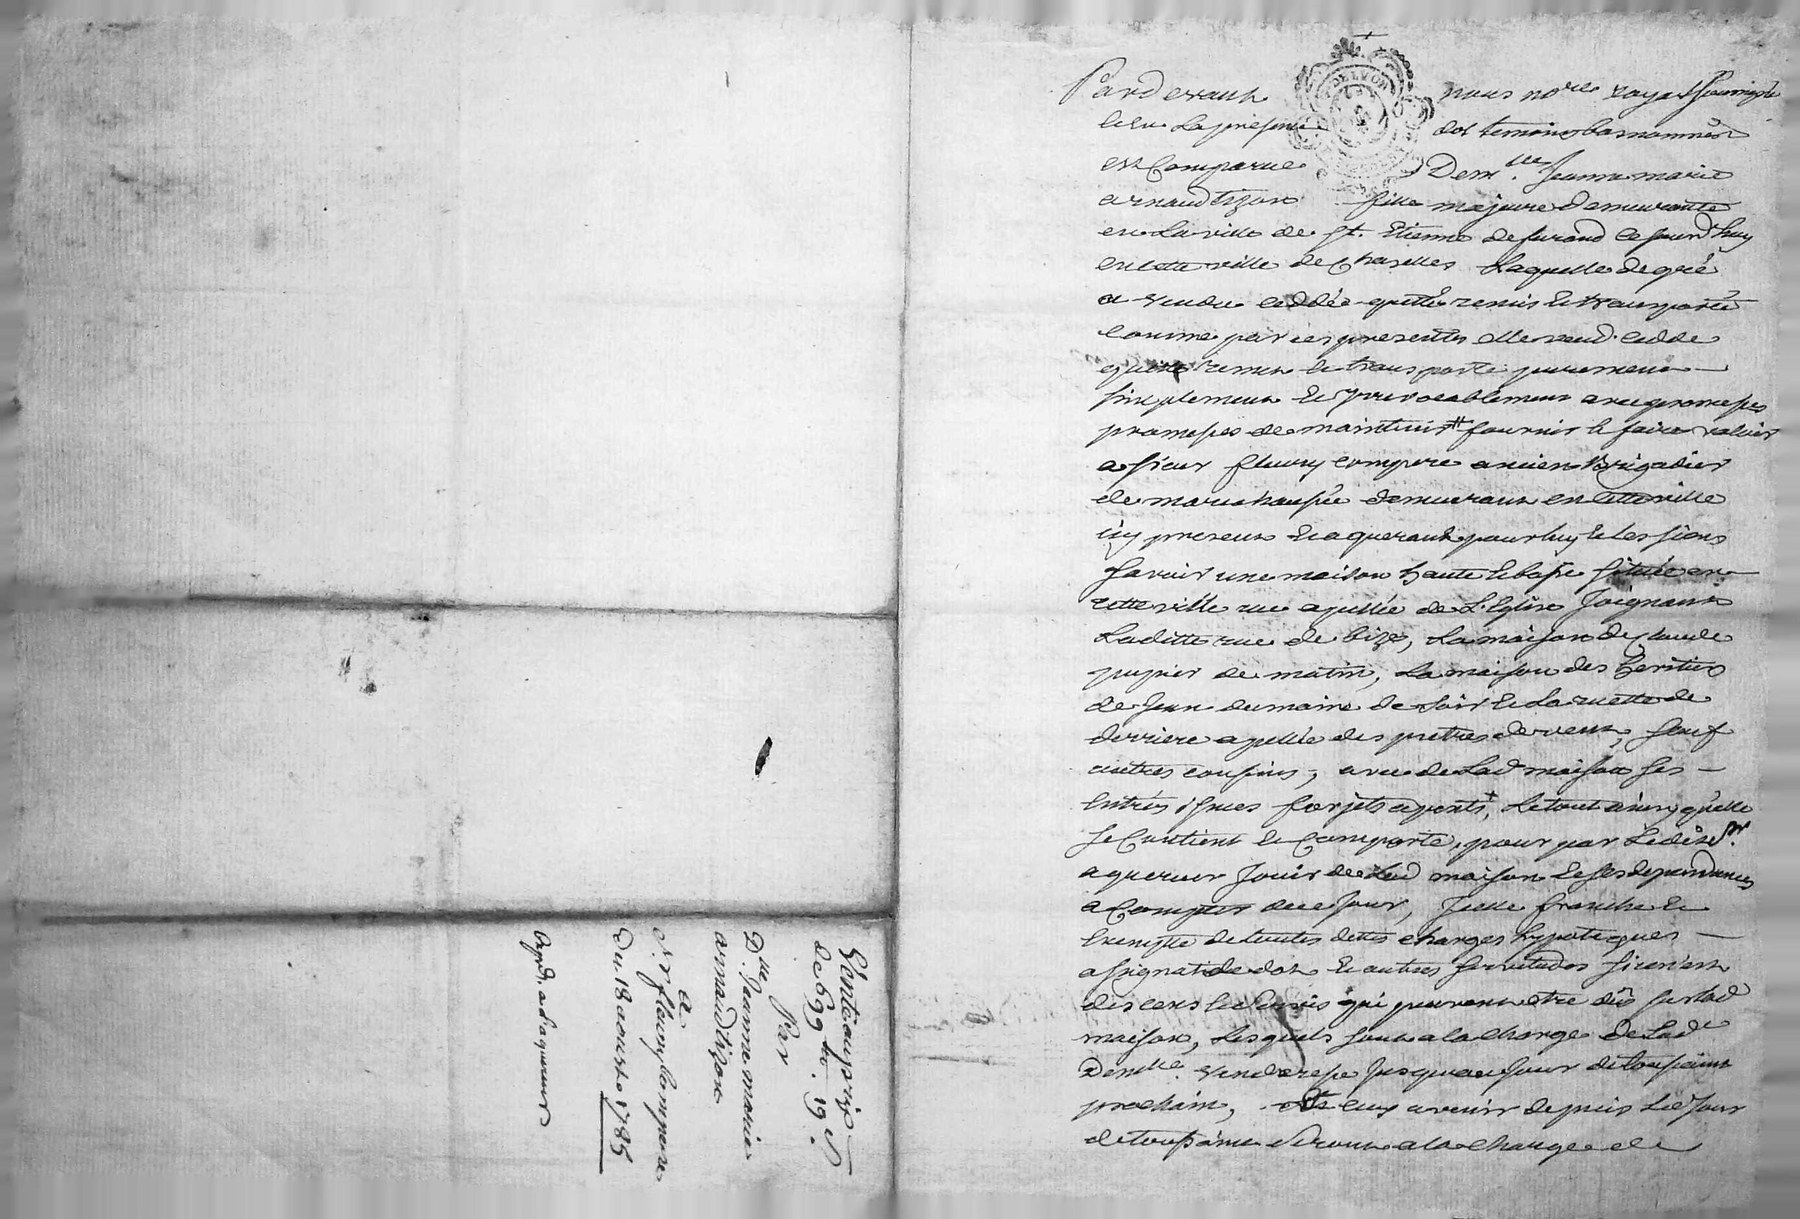 Vente au prix
de 699 lt. 19 s.
Par
D.lle Jeanne marie
arnaud tizon
a
S.r fleury compere
Du 18 aoust 1785
Expd. a l'aquereur
Pardevant nous no.re royal soussigné
et en la presence des temoins bas nommés
est Comparue Dem.lle Jeanne marie
arnaud tizon fille majeure demeurante
en la ville de St. Etienne de furand ce jourd'huy
en cette ville de Chazelles laquelle de gré
a vendu ceddé quitté remis et transporté
comme par ces presentes elle vend cedde
quitte remet et transporte purement
simplement et Irrevocablement avec promesses
promesses de maintenir # fournir et faire valoir
a sieur fleury compere ancien Brigadier
de marechaussée demeurant en cette ville
icy present et aquerant pour luy et les siens
savoir une maison haute et basse située en
cette ville rue apellée de L'Eglise Joignant
laditte rue de bize, la maison de claude
pupier de matin, la maison des heritiers
de Jean dumaine de soir et la ruette de
derriere apellée des pretres de vent, sauf
autres confins, avec de lad maison ses
entrées issues forjets apents +, le tout ainsy qu'elle
se Contient et Comporte, pour par ledit s.r
aquereur Jouir de lad maison et ses dependances
a Compter de ce Jour, Icelle franche et
Exempte de toutes dettes charges hypoteques
assignat de dot et autres servitudes si ce n'est
des cens et servis qui peuvent etre dûs sur lad
maison, lesquels sont a la charge de lad.e
Dem.lle venderesse Jusqu'au jour de toussaint
prochain, et ceux a venir depuis led Jour
de toussaint seront a la charge de